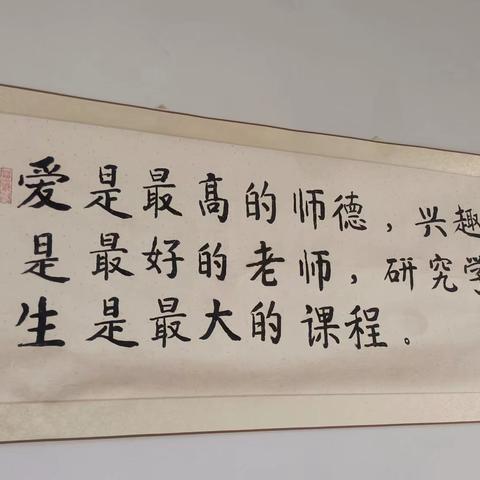 爱是最高的师德，兴趣
是最好的老师，研究学
生是最大的课程。